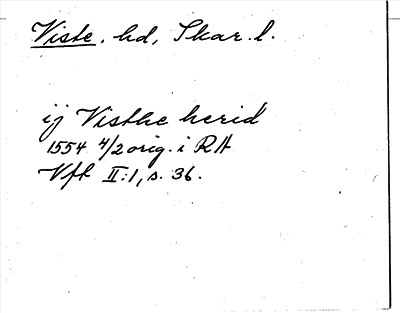 Viste, hd, Skar. l.
ij Visthe herid
1554 4/2 orig. i RA
Vft II:1, s. 36.